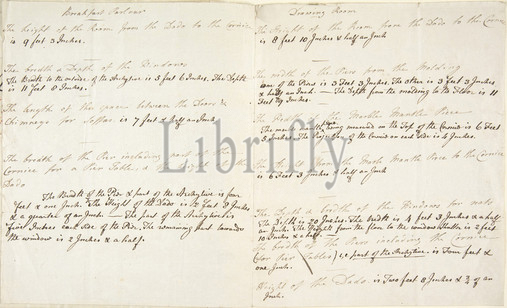 Breakfast Parlour
The height of the Room from the Dado to the Cornice
is 9 feet 3 Inches.
The breadth & Depth of the Windows
The Width to the outside of the Architrave is 5 feet 6 Inches. The Depth
is 11 feet 8 Inches.
The length of the space between the Door &
Chimney for Soffas is 7 feet & half an Inch
The breadth of the Pier including part of the
Cornice for a Pier Table, & the height of the
Dado
The Width of the Pier & part of the Architrave is four
feet & one Inch. The Height of the Dado is 2 feet 8 Inches
& a quarter of an Inch — The part of the Architrave is
five Inches each side of the Pier. The remaining part towards
the window is 2 Inches & a half.
Drawing Room
The Height of the Room from the Dado to the Cornice
is 8 feet 10 Inches & half an Inch
The width of the Piers from the Molding
one of the Piers is 3 feet 3 Inches. The other is 3 feet 3 Inches
& half an Inch — The Depth from the moulding to the Floor is 11
feet by Inches.
The Marble Mantle Piece
The marble mantle being measured on the Top of the Cornice is 6 Feet
5 Inches. The of the Cornice on each side is 4 Inches.
The Height from the Marble Mantle Piece to the Cornice
is 6 feet 3 Inches & half an Inch
The breadth of the Windows for
The Width is 50 Inches. The breadth is 4 feet 3 Inches & a half
an Inch. The Height from the floor to the window is 2 feet
10 Inches & a half.
The breadth of the Piers including the Cornice
(for Pier Tables) i.e. part of the Architrave. is Four feet &
one Inch.
Height of the Dado. is Two feet 8 Inches & 3/4 of an
Inch.
Librifly